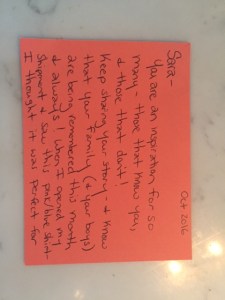 Oct 2016
Sara-
You are an inspiration for so
many - those that know you,
& those that don't!
Keep sharing your story - & know
that your family (& your boys)
are being remembered this month
& always! When I opened my
Shipment & saw this pink/blue shirt-
I thought it was perfect for